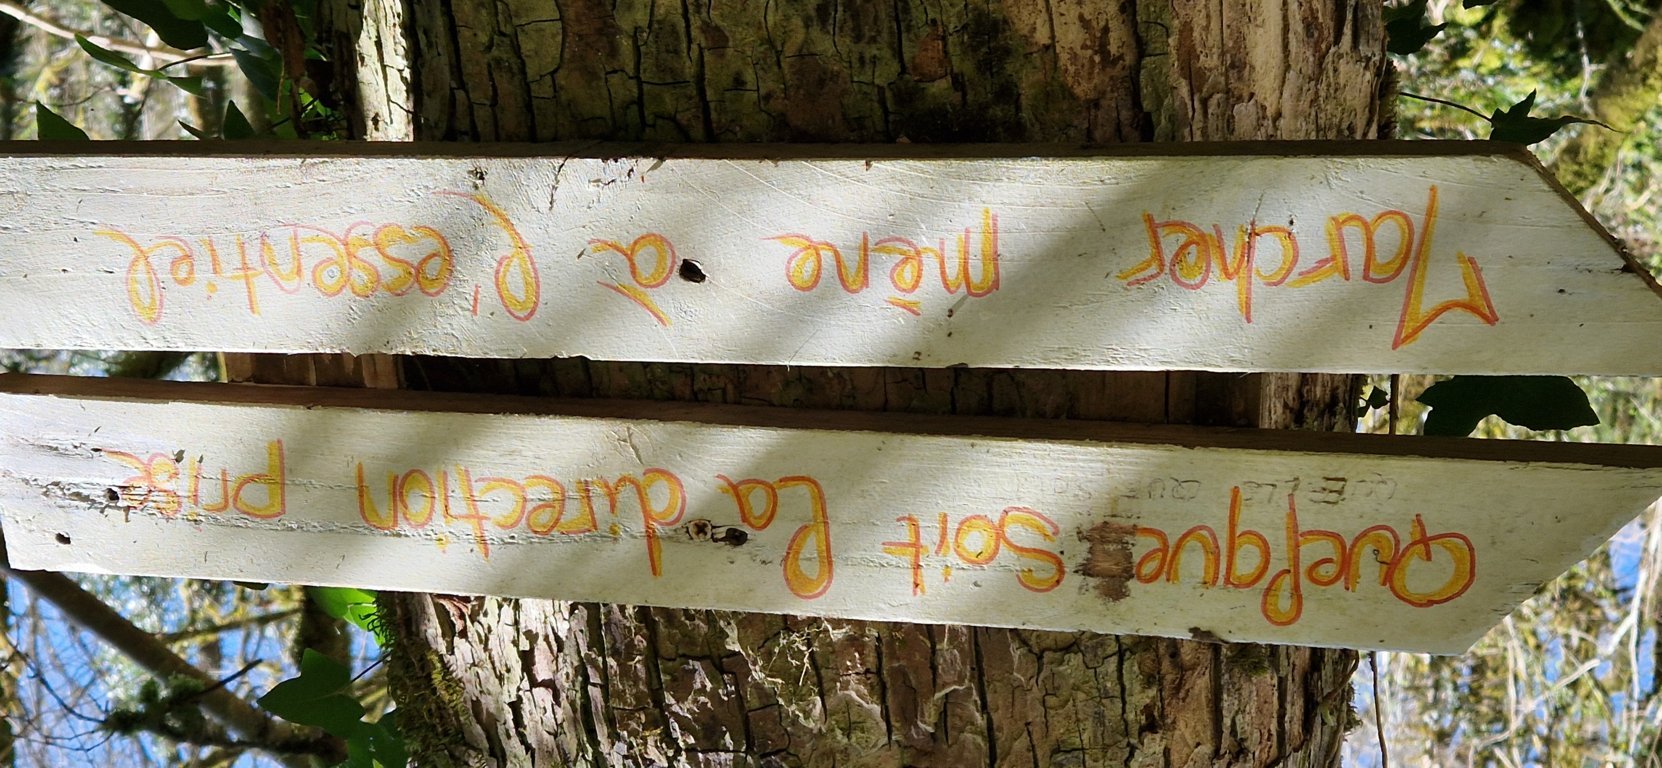 Quelque Soit la direction prise
QUELLE QUE
Marcher mène à l'essentiel